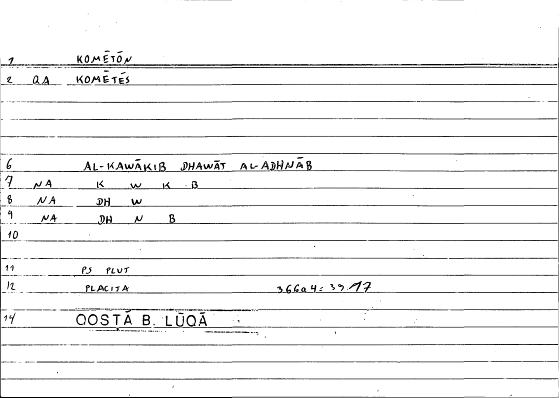 1 KOMĒTŌN
2 QA KOMĒTĒS
6 AL-KAWĀKIB DHAWĀT AL-ADHNĀB
7 NA K W K B
8 NA DH W
9 NA DH N B
10
11 PS PLUT
12 PLACITA 366a4 = 39.17
14 QOSṬĀ B. LŪQĀ